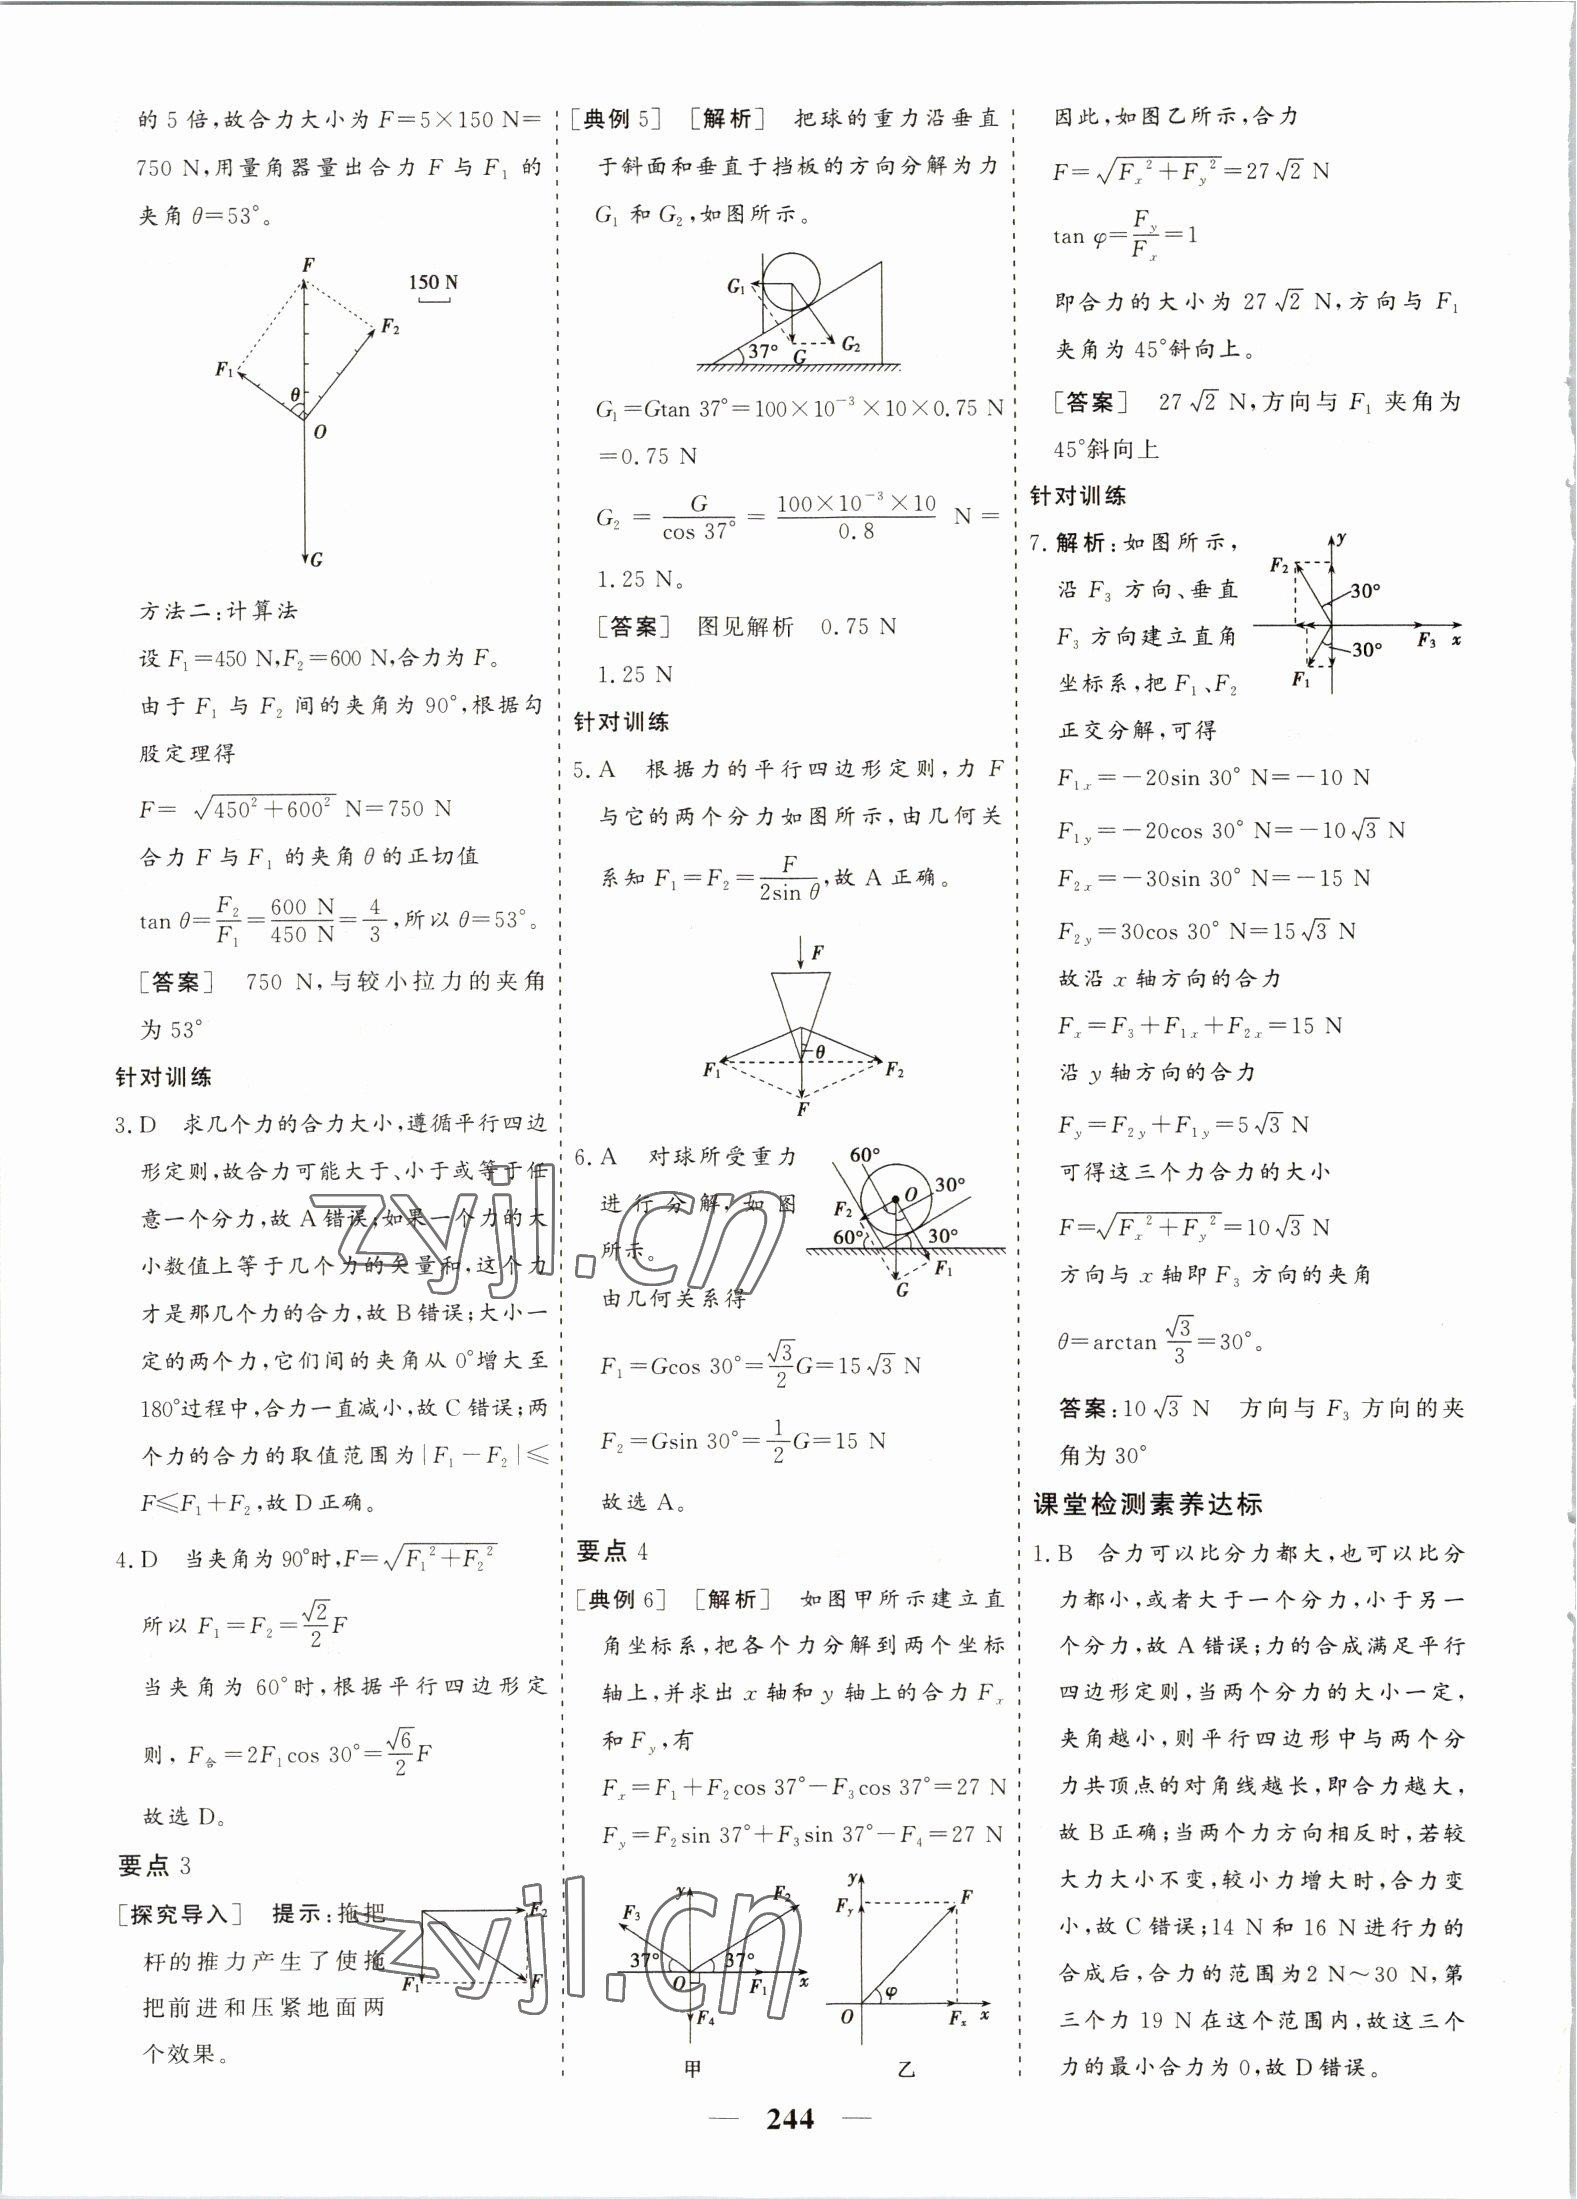 的5倍,故合力大小为F=5×150 N=
750 N,用量角器量出合力F与F₁的
夹角θ=53°。
F
150 N
F₂
F₁
θ
O
G
方法二:计算法
设F₁=450 N,F₂=600 N,合力为F。
由于F₁与F₂间的夹角为90°,根据勾
股定理得
F=√(450²+600²) N=750 N
合力F与F₁的夹角θ的正切值
tan θ=F₂/F₁=600 N/450 N=4/3,所以θ=53°。
[答案] 750 N,与较小拉力的夹角
为53°
针对训练
3. D 求几个力的合力大小,遵循平行四边
形定则,故合力可能大于、小于或等于任
意一个分力,故A错误;如果一个力的大
小数值上等于几个力的矢量和,这个力
才是那几个力的合力,故B错误;大小一
定的两个力,它们间的夹角从0°增大至
180°过程中,合力一直减小,故C错误;两
个力的合力的取值范围为|F₁-F₂|≤
F≤F₁+F₂,故D正确。
4. D 当夹角为90°时,F=√(F₁²+F₂²)
所以F₁=F₂=√2/2 F
当夹角为60°时,根据平行四边形定
则,F合=2F₁cos 30°=√6/2 F
故选D。
要点3
[探究导入] 提示:拖把
杆的推力产生了使拖
把前进和压紧地面两
个效果。
F₂
F₁
F
[典例5] [解析] 把球的重力沿垂直
于斜面和垂直于挡板的方向分解为力
G₁和G₂,如图所示。
G₁
37°
G
G₂
G₁=Gtan 37°=100×10⁻³×10×0.75 N
=0.75 N
G₂=G/cos 37°=100×10⁻³×10/0.8 N=
1.25 N。
[答案] 图见解析 0.75 N
1.25 N
针对训练
5. A 根据力的平行四边形定则,力F
与它的两个分力如图所示,由几何关
系知F₁=F₂=F/2sin θ,故A正确。
F
θ
F₁
F₂
F
6. A 对球所受重力
进行分解,如图
所示。
60°
O
30°
F₂
60°
30°
F₁
G
由几何关系得
F₁=Gcos 30°=√3/2 G=15√3 N
F₂=Gsin 30°=1/2 G=15 N
故选A。
要点4
[典例6] [解析] 如图甲所示建立直
角坐标系,把各个力分解到两个坐标
轴上,并求出x轴和y轴上的合力Fₓ
和F_y,有
Fₓ=F₁+F₂cos 37°-F₃cos 37°=27 N
F_y=F₂sin 37°+F₃sin 37°-F₄=27 N
y
F₂
F₃
37°
37°
O
F₁
x
F₄
甲
y
F_y
F
φ
O
Fₓ
x
乙
因此,如图乙所示,合力
F=√(Fₓ²+F_y²)=27√2 N
tan φ=F_y/Fₓ=1
即合力的大小为27√2 N,方向与F₁
夹角为45°斜向上。
[答案] 27√2 N,方向与F₁夹角为
45°斜向上
针对训练
7. 解析:如图所示,
沿F₃方向、垂直
F₃方向建立直角
坐标系,把F₁、F₂
正交分解,可得
y
F₂
30°
F₃
x
30°
F₁
F₁ₓ=-20sin 30° N=-10 N
F₁_y=-20cos 30° N=-10√3 N
F₂ₓ=-30sin 30° N=-15 N
F₂_y=30cos 30° N=15√3 N
故沿x轴方向的合力
Fₓ=F₃+F₁ₓ+F₂ₓ=15 N
沿y轴方向的合力
F_y=F₂_y+F₁_y=5√3 N
可得这三个力合力的大小
F=√(Fₓ²+F_y²)=10√3 N
方向与x轴即F₃方向的夹角
θ=arctan √3/3=30°。
答案:10√3 N 方向与F₃方向的夹
角为30°
课堂检测素养达标
1. B 合力可以比分力都大,也可以比分
力都小,或者大于一个分力,小于另一
个分力,故A错误;力的合成满足平行
四边形定则,当两个分力的大小一定,
夹角越小,则平行四边形中与两个分
力共顶点的对角线越长,即合力越大,
故B正确;当两个力方向相反时,若较
大力大小不变,较小力增大时,合力变
小,故C错误;14 N和16 N进行力的
合成后,合力的范围为2 N~30 N,第
三个力19 N在这个范围内,故这三个
力的最小合力为0,故D错误。
zyjl.cn
zyjl.cn
— 244 —